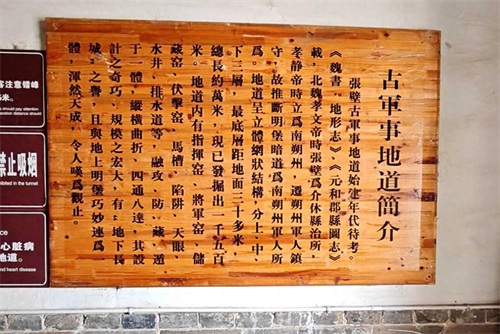 古軍事地道簡介
張壁古軍事地道始建年代待考。
《魏書·地形志》、《元和郡縣圖志》
載，北魏孝文帝時張壁爲介休縣治所，
孝静帝時立爲南朔州，遷朔州軍人鎮
守，故推斷明堡暗道爲南朔州軍人所
爲。地道呈立體網狀結構，分上、中、
下三層，最底層距地面二十多米，
總長約萬米，現已發掘出一千五百
米。地道内有指揮窑、將軍窑、儲
藏窑、伏擊窑、馬槽、陷阱、天眼、
水井、排水道等，融攻、防、藏、遁
于一體，縱橫曲折，四通八達，其設
計之奇巧、規模之宏大，有“地下長
城”之譽，且與地上明堡巧妙連爲一
體，渾然天成，令人嘆爲觀止。
客注意错峰
米。
should pay attention
distance should
禁止吸烟
in the tunnel
nce
心脏病
地道。
and heart disease